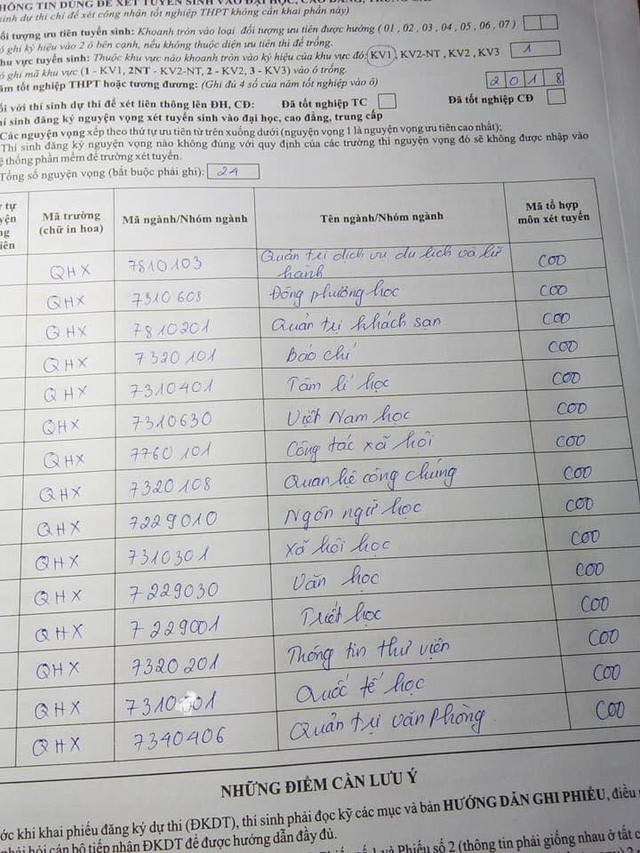 HÔNG TIN DÙNG ĐỂ XÉT TUYỂN SINH VÀO ĐẠI HỌC, CAO ĐẲNG, TRUNG CẤP
sinh dự thi chỉ để xét công nhận tốt nghiệp THPT không cần khai phần này)
ối tượng ưu tiên tuyển sinh: Khoanh tròn vào loại đối tượng ưu tiên được hưởng ( 01 , 02 , 03 , 04 , 05 , 06 , 07 )
ó ghi ký hiệu vào 2 ô bên cạnh, nếu không thuộc diện ưu tiên thì để trống.
hu vực tuyển sinh: Thuộc khu vực nào khoanh tròn vào ký hiệu của khu vực đó; KV1, KV2-NT , KV2 , KV3 1
ó ghi mã khu vực (1 - KV1, 2NT - KV2-NT, 2 - KV2, 3 - KV3) vào ô trống.
ăm tốt nghiệp THPT hoặc tương đương: (Ghi đủ 4 số của năm tốt nghiệp vào ô) 2018
ối với thí sinh dự thi để xét liên thông lên ĐH, CĐ: Đã tốt nghiệp TC Đã tốt nghiệp CĐ
hí sinh đăng ký nguyện vọng xét tuyển sinh vào đại học, cao đẳng, trung cấp
Các nguyện vọng xếp theo thứ tự ưu tiên từ trên xuống dưới (nguyện vọng 1 là nguyện vọng ưu tiên cao nhất);
Thí sinh đăng ký nguyện vọng nào không đúng với quy định của các trường thì nguyện vọng đó sẽ không được nhập vào
ệ thống phần mềm để trường xét tuyển.
Tổng số nguyện vọng (bắt buộc phải ghi): 24
tự
yện
ng
iên
Mã trường
(chữ in hoa)
Mã ngành/Nhóm ngành
Tên ngành/Nhóm ngành
Mã tổ hợp
môn xét tuyển
QHX 7810103 Quản trị dịch vụ du lịch và lữ hành C00
QHX 7310608 Đông phương học C00
QHX 7810201 Quản trị khách sạn C00
QHX 7320101 Báo chí C00
QHX 7310401 Tâm lí học C00
QHX 7310630 Việt Nam học C00
QHX 7760101 Công tác xã hội C00
QHX 7320108 Quan hệ công chúng C00
QHX 7229010 Ngôn ngữ học C00
QHX 7310301 Xã hội học C00
QHX 7229030 Văn học C00
QHX 7229001 Triết học C00
QHX 7320201 Thông tin thư viện C00
QHX 7310601 Quốc tế học C00
QHX 7340406 Quản trị văn phòng C00
NHỮNG ĐIỂM CẦN LƯU Ý
ớc khi khai phiếu đăng ký dự thi (ĐKDT), thí sinh phải đọc kỹ các mục và bản HƯỚNG DẪN GHI PHIẾU, điều
phải hỏi cán bộ tiếp nhận ĐKDT để được hướng dẫn đầy đủ.
số 1 và Phiếu số 2 (thông tin phải giống nhau ở tất c